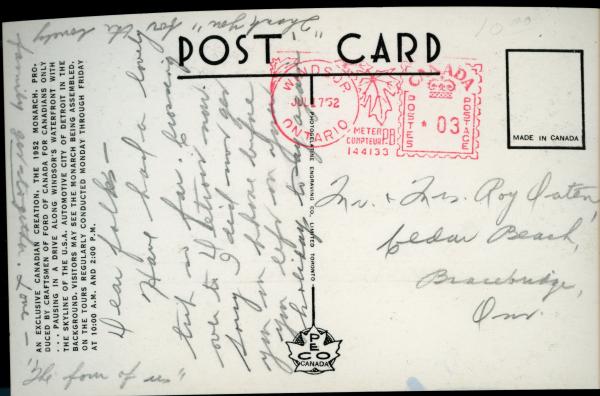 POST CARD
AN EXCLUSIVE CANADIAN CREATION, THE 1952 MONARCH, PRO-
DUCED BY CRAFTSMEN OF FORD OF CANADA FOR CANADIANS ONLY
... PAUSING IN A DRIVE ALONG WINDSOR'S WATERFRONT WITH
THE SKYLINE OF THE U.S.A. AUTOMOTIVE CITY OF DETROIT IN THE
BACKGROUND. VISITORS MAY SEE THE MONARCH BEING ASSEMBLED,
ON THE TOURS REGULARLY CONDUCTED MONDAY THROUGH FRIDAY
AT 10:00 A.M. AND 2:00 P.M.
Dear folks —
Have had a lovely
trip so far. Crossing
over to Detroit now.
Sorry I did not get
you on phone before
you left on your
holiday to say again
"Thank you" for the lovely
family get together. Love —
"The four of us"
PHOTOGELATINE ENGRAVING CO. LIMITED TORONTO
PECO
CANADA
WINDSOR
JUL 17 '52
ONTARIO
METER PB
COMPTEUR
144133
CANADA
POSTES
* 03
POSTAGE
MADE IN CANADA
10.00
Mr. & Mrs. Roy Eaton,
Cedar Beach,
Bracebridge,
Ont.